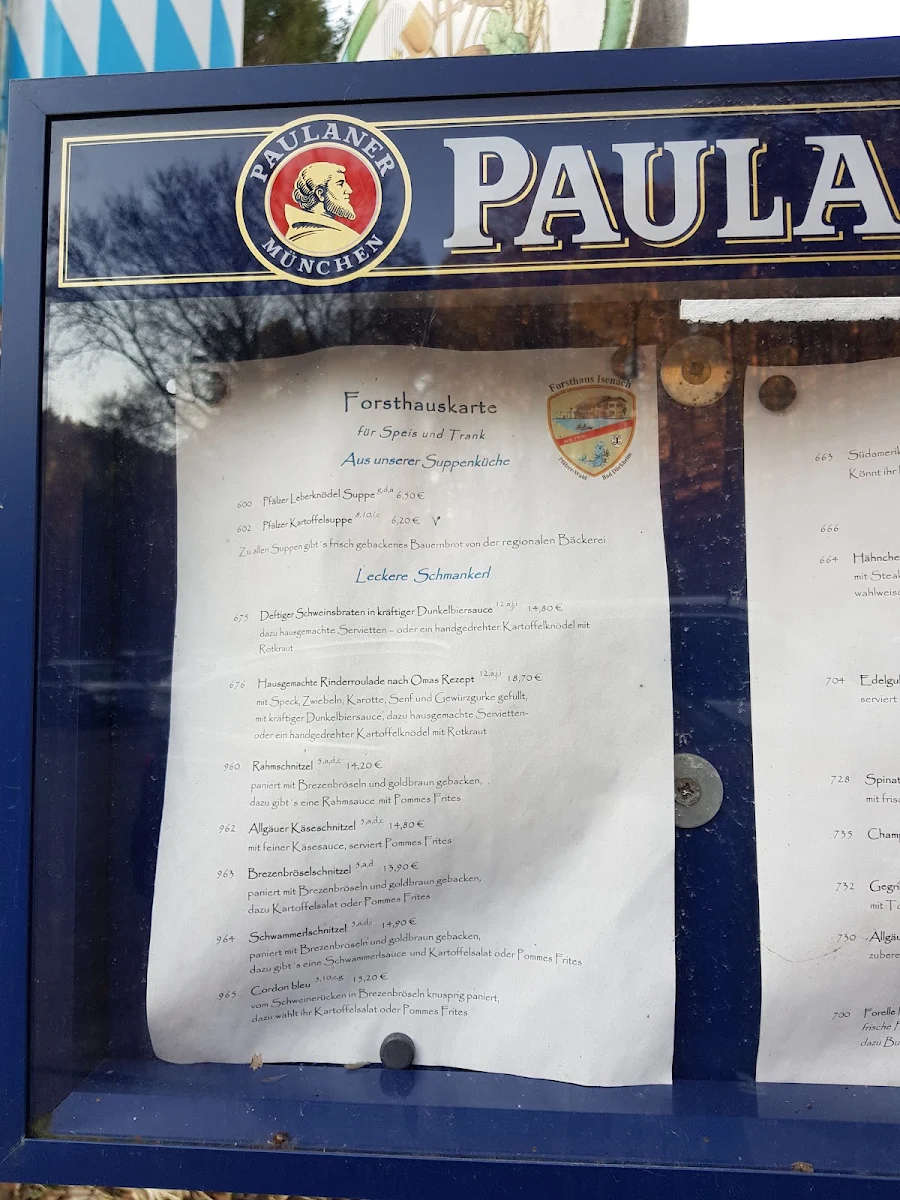 PAULANER
MÜNCHEN
PAULA
Forsthaus Isenach
seit 1900
Pfälzer-Wald Bad Dürkheim
Forsthauskarte
für Speis und Trank
Aus unserer Suppenküche
600 Pfälzer Leberknödel Suppe g,d,a 6,50 €
602 Pfälzer Kartoffelsuppe 6,20 € V
Zu allen Suppen gibt´s frisch gebackenes Bauernbrot von der regionalen Bäckerei
Leckere Schmankerl
675 Deftiger Schweinsbraten in kräftiger Dunkelbiersauce 12,a,j,i 14,80 €
dazu hausgemachte Servietten – oder ein handgedrehter Kartoffelknödel mit
Rotkraut
676 Hausgemachte Rinderroulade nach Omas Rezept 12,a,j,i 18,70 €
mit Speck, Zwiebeln, Karotte, Senf und Gewürzgurke gefüllt,
mit kräftiger Dunkelbiersauce, dazu hausgemachte Servietten-
oder ein handgedrehter Kartoffelknödel mit Rotkraut
960 Rahmschnitzel 5,a,d,c 14,20 €
paniert mit Brezenbröseln und goldbraun gebacken,
dazu gibt´s eine Rahmsauce mit Pommes Frites
962 Allgäuer Käseschnitzel 5,a,d,c 14,80 €
mit feiner Käsesauce, serviert Pommes Frites
963 Brezenbröselschnitzel 5,a,d 13,90 €
paniert mit Brezenbröseln und goldbraun gebacken,
dazu Kartoffelsalat oder Pommes Frites
964 Schwammerlschnitzel 5,a,d,i 14,90 €
paniert mit Brezenbröseln und goldbraun gebacken,
dazu gibt´s eine Schwammerlsauce und Kartoffelsalat oder Pommes Frites
965 Cordon bleu 5,10,c,g 15,20 €
vom Schweinerücken in Brezenbröseln knusprig paniert,
dazu wählt ihr Kartoffelsalat oder Pommes Frites
663 Südamerik
Könnt ihr
666
664 Hähnche
mit Steak
wahlweis
704 Edelgul
serviert
728 Spinat
mit fris
735 Champ
732 Gegri
mit To
730 Allgäu
zubere
700 Forelle
frische F
dazu Bu